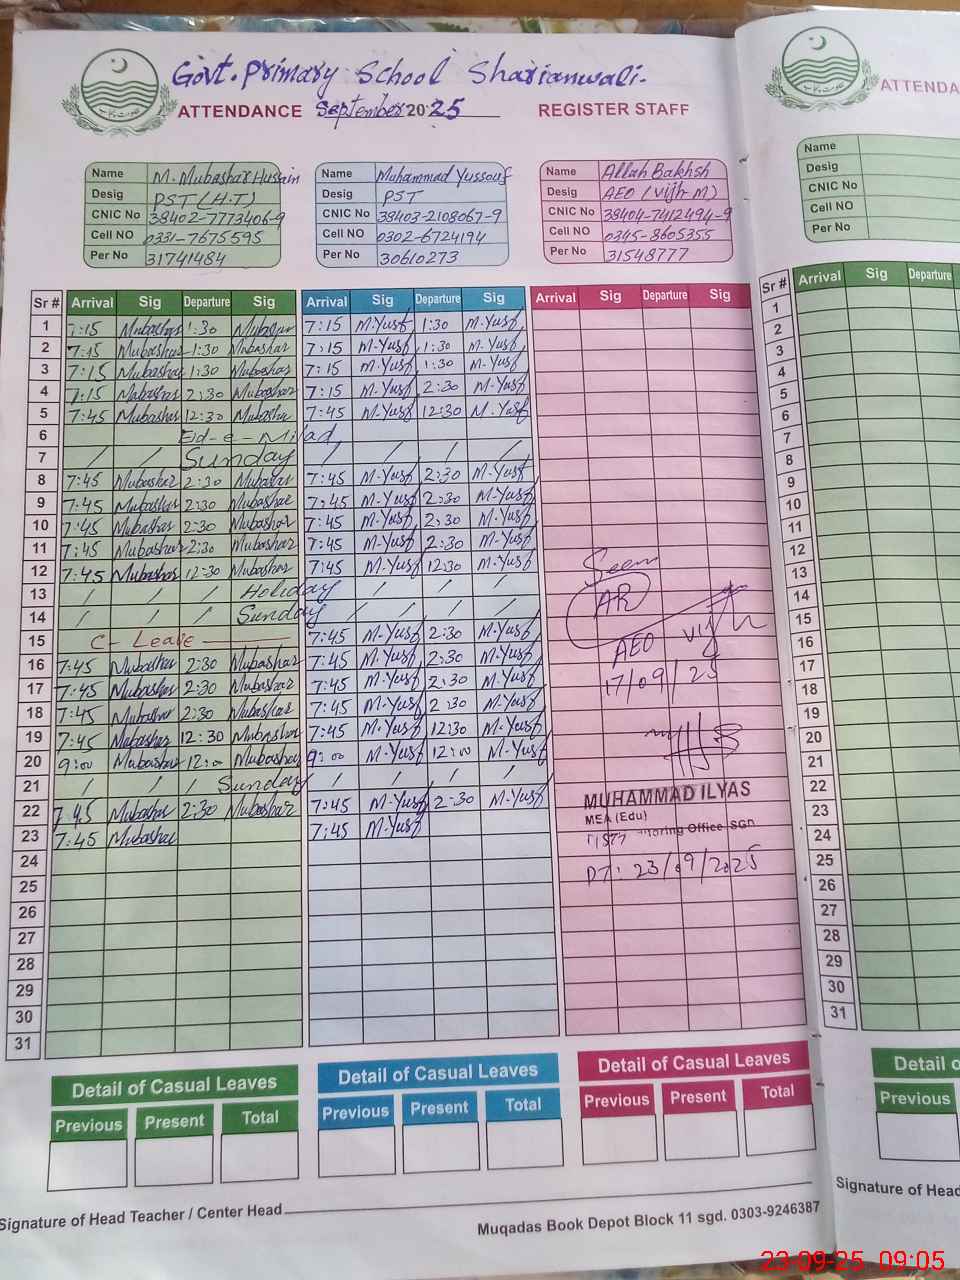 Govt. Primary School Sharianwali.
ATTENDANCE September 2025 REGISTER STAFF
ATTENDA
Name M. Mubashar Hussain
Desig PST (H.T)
CNIC No 38402-7773406-9
Cell NO 0331-7675595
Per No 31741484
Name Muhammad Yussouf
Desig PST
CNIC No 38403-2108067-9
Cell NO 0302-6724194
Per No 30610273
Name Allah Bakhsh
Desig AEO (Vijh-M)
CNIC No 38404-7412494-9
Cell NO 0345-8605355
Per No 31548777
Name
Desig
CNIC No
Cell NO
Per No
Sr # Arrival Sig Departure Sig Arrival Sig Departure Sig Arrival Sig Departure Sig
1 7:15 Mubashar 1:30 Mubashar 7:15 M.Yusf 1:30 M.Yusf
2 7:15 Mubashar 1:30 Mubashar 7:15 M.Yusf 1:30 M.Yusf
3 7:15 Mubashar 1:30 Mubashar 7:15 M.Yusf 1:30 M.Yusf
4 7:15 Mubashar 2:30 Mubashar 7:15 M.Yusf 2:30 M.Yusf
5 7:45 Mubashar 12:30 Mubashar 7:45 M.Yusf 12:30 M.Yusf
6 Eid-e-Milad
7 / / Sunday / / / /
8 7:45 Mubashar 2:30 Mubashar 7:45 M.Yusf 2:30 M.Yusf
9 7:45 Mubashar 2:30 Mubashar 7:45 M.Yusf 2:30 M.Yusf
10 7:45 Mubashar 2:30 Mubashar 7:45 M.Yusf 2:30 M.Yusf
11 7:45 Mubashar 2:30 Mubashar 7:45 M.Yusf 2:30 M.Yusf
12 7:45 Mubashar 12:30 Mubashar 7:45 M.Yusf 12:30 M.Yusf
13 / / / Holiday / / /
14 / / / Sunday / / /
15 C- Leave 7:45 M.Yusf 2:30 M.Yusf
16 7:45 Mubashar 2:30 Mubashar 7:45 M.Yusf 2:30 M.Yusf
17 7:45 Mubashar 2:30 Mubashar 7:45 M.Yusf 2:30 M.Yusf
18 7:45 Mubashar 2:30 Mubashar 7:45 M.Yusf 2:30 M.Yusf
19 7:45 Mubashar 12:30 Mubashar 7:45 M.Yusf 12:30 M.Yusf
20 9:00 Mubashar 12:00 Mubashar 9:00 M.Yusf 12:00 M.Yusf
21 / / / Sunday / / / /
22 7:45 Mubashar 2:30 Mubashar 7:45 M.Yusf 2:30 M.Yusf
23 7:45 Mubashar 7:45 M.Yusf
24
25
26
27
28
29
30
31
Seen
AR
AEO Vijh
17/09/25
MUHAMMAD ILYAS
MEA (Edu)
Office SGD
DT: 23/09/2025
Sr # Arrival Sig Departure
1
2
3
4
5
6
7
8
9
10
11
12
13
14
15
16
17
18
19
20
21
22
23
24
25
26
27
28
29
30
31
Detail of Casual Leaves
Previous Present Total
Detail of Casual Leaves
Previous Present Total
Detail of Casual Leaves
Previous Present Total
Detail o
Previous
Signature of Head Teacher / Center Head
Muqadas Book Depot Block 11 sgd. 0303-9246387
Signature of Head
23-09-25 09:05